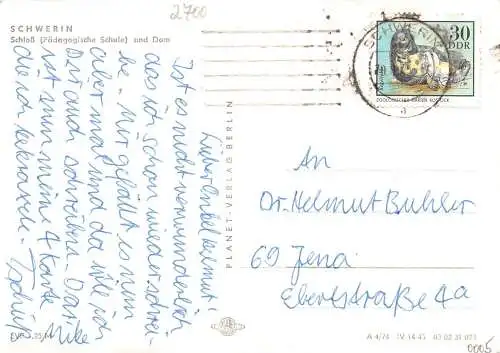 2700
SCHWERIN
Schloß (Pädagogische Schule) und Dom
Lieber Onkel Helmut!
Ist es nicht verwunderlich
das ich schon wieder schrei-
be. Mir gefällt es nun
aber mal und da will ich
Dir auch schreiben. Das
ist nun meine 4 Karte
die ich
Tschüß
Mike
PLANET-VERLAG BERLIN
SCHWERIN
30
DDR
ZOOLOGISCHER GARTEN ROSTOCK
An
Dr. Helmut Buhler
69 Jena
Ebertstraße 4a
A 4/74 IV-14-45 03 02 31 073
0005